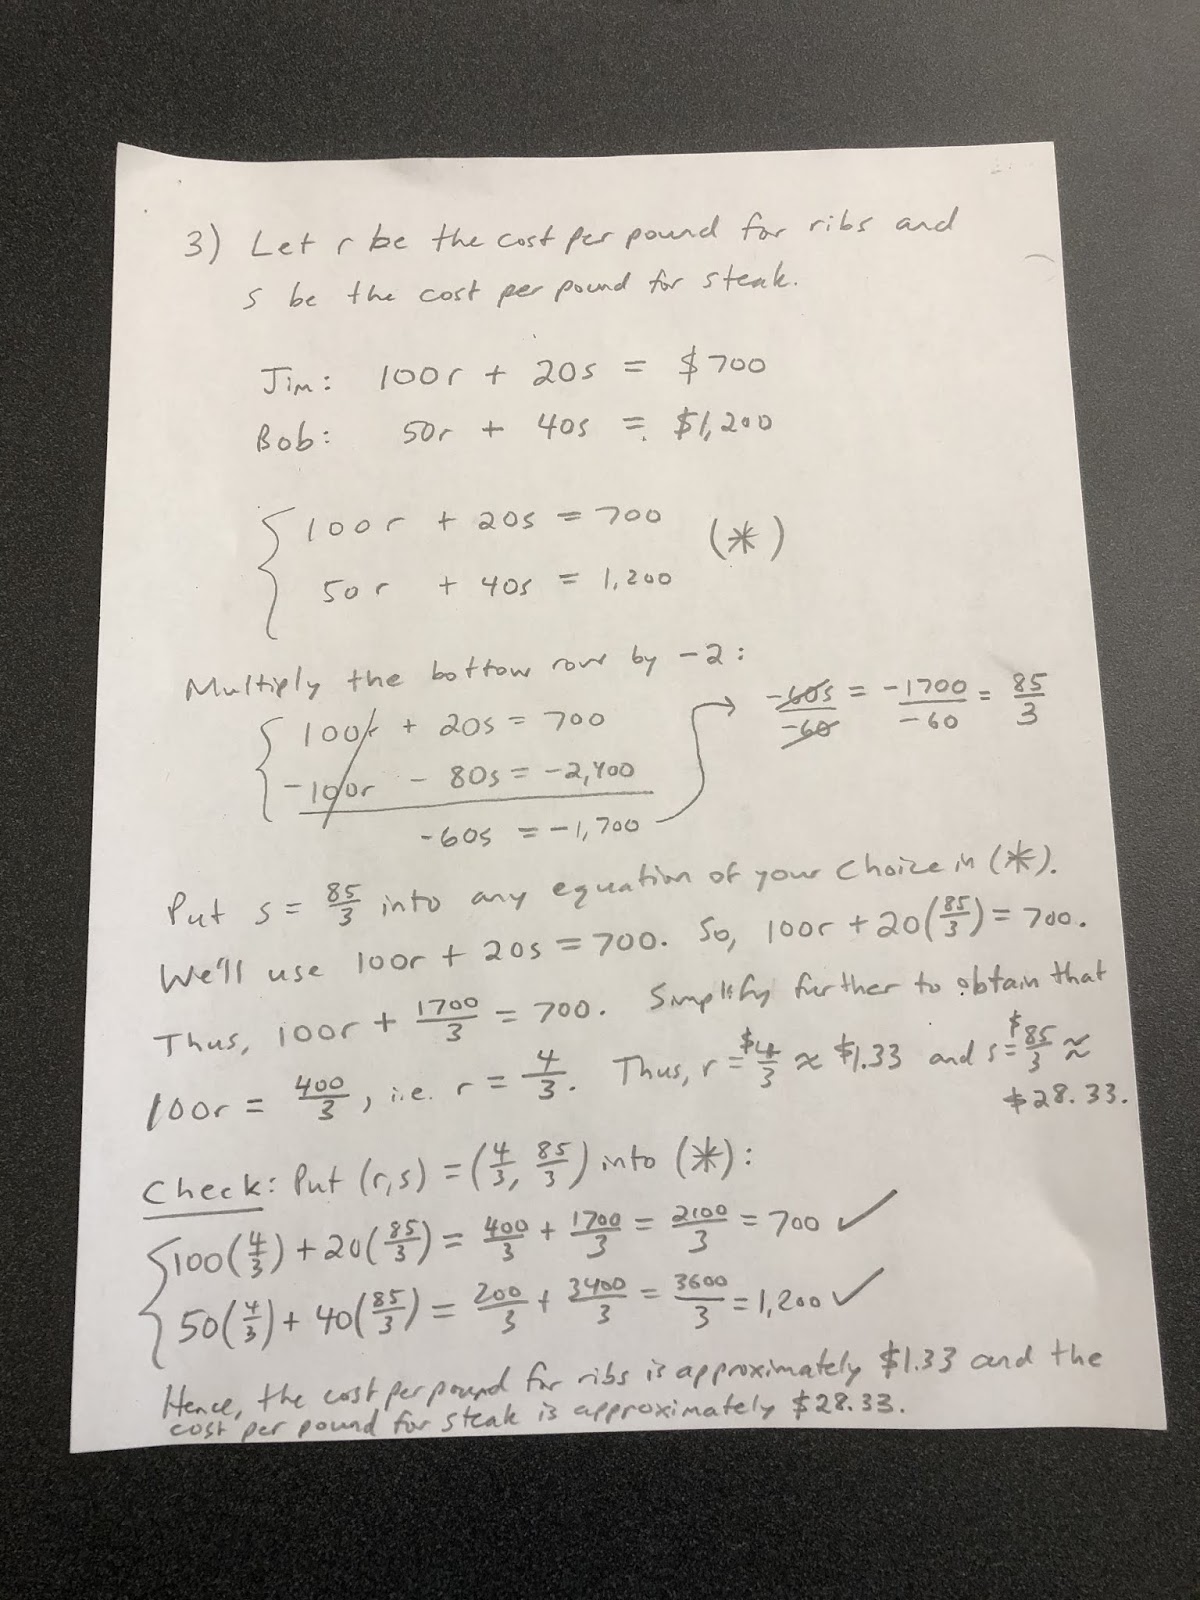 3) Let r be the cost per pound for ribs and
s be the cost per pound for steak.
Jim: 100r + 20s = $700
Bob: 50r + 40s = $1,200
100r + 20s = 700
(*)
50r + 40s = 1,200
Multiply the bottom row by -2:
100r + 20s = 700
-100r - 80s = -2,400
-60s = -1,700
-60s/-60 = -1700/-60 = 85/3
Put s = 85/3 into any equation of your choice in (*).
We'll use 100r + 20s = 700. So, 100r + 20(85/3) = 700.
Thus, 100r + 1700/3 = 700. Simplify further to obtain that
100r = 400/3, i.e. r = 4/3. Thus, r = $4/3 ≈ $1.33 and s = $85/3 ≈
$28.33.
Check: Put (r,s) = (4/3, 85/3) into (*):
100(4/3) + 20(85/3) = 400/3 + 1700/3 = 2100/3 = 700 ✓
50(4/3) + 40(85/3) = 200/3 + 3400/3 = 3600/3 = 1,200 ✓
Hence, the cost per pound for ribs is approximately $1.33 and the
cost per pound for steak is approximately $28.33.